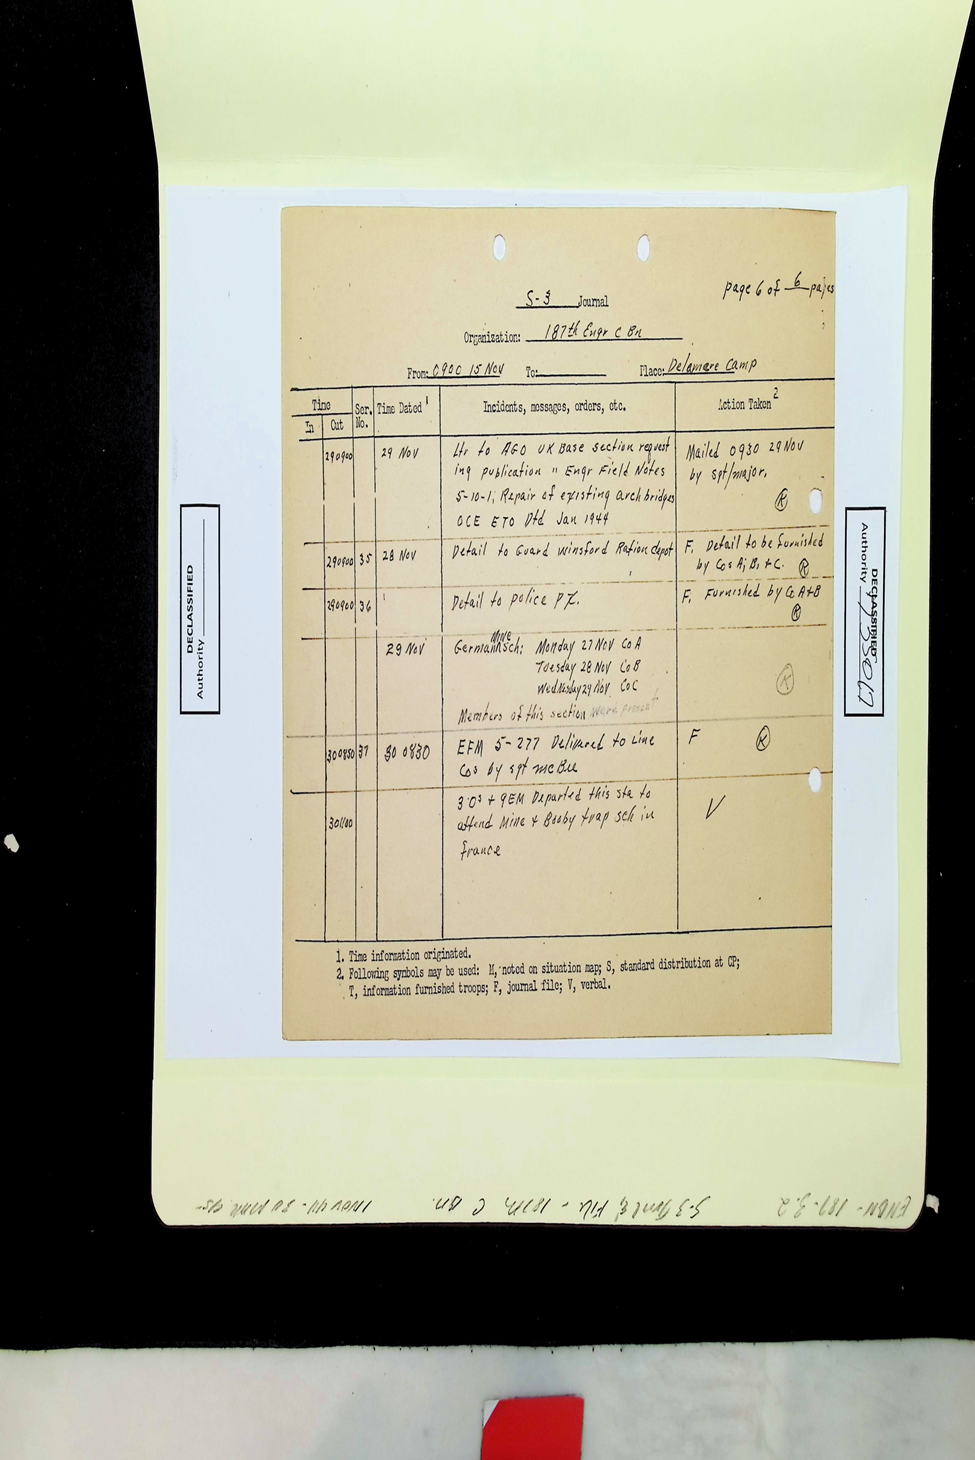 page 6 of 6 pages
S-3 Journal
Organization: 187th Engr C Bn
From: 0900 15 Nov To: Place: Delamere Camp
Time Ser. No. Time Dated 1 Incidents, messages, orders, etc. Action Taken 2
In Out
290900 29 Nov Ltr to AGO UK Base section request Mailed 0930 29 Nov
ing publication " Engr Field Notes by sgt/major.
5-10-1, Repair of existing arch bridges (R)
OCE ETO Dtd Jan 1944
290900 35 28 Nov Detail to Guard Winsford Ration depot F. Detail to be furnished
by Cos A, B, + C. (R)
290900 36 Detail to police PX. F. Furnished by Co A+B
(R)
Mine
29 Nov German sch: Monday 27 Nov Co A
Tuesday 28 Nov Co B
Wednesday 29 Nov Co C (R)
Members of this section were present
300850 37 30 0830 EFM 5-277 Delivered to Line F (R)
Cos by sgt McBee
3 Os + 9EM Departed this sta to V
301100 attend Mine + Booby trap sch in
France
1. Time information originated.
2. Following symbols may be used: M, noted on situation map; S, standard distribution at CP;
T, information furnished troops; F, journal file; V, verbal.
DECLASSIFIED
Authority
DECLASSIFIED
Authority
ENBN-187-3.2 S-3 Jnl & File - 187th C Bn. 1 Nov 44 - 30 Mar 45